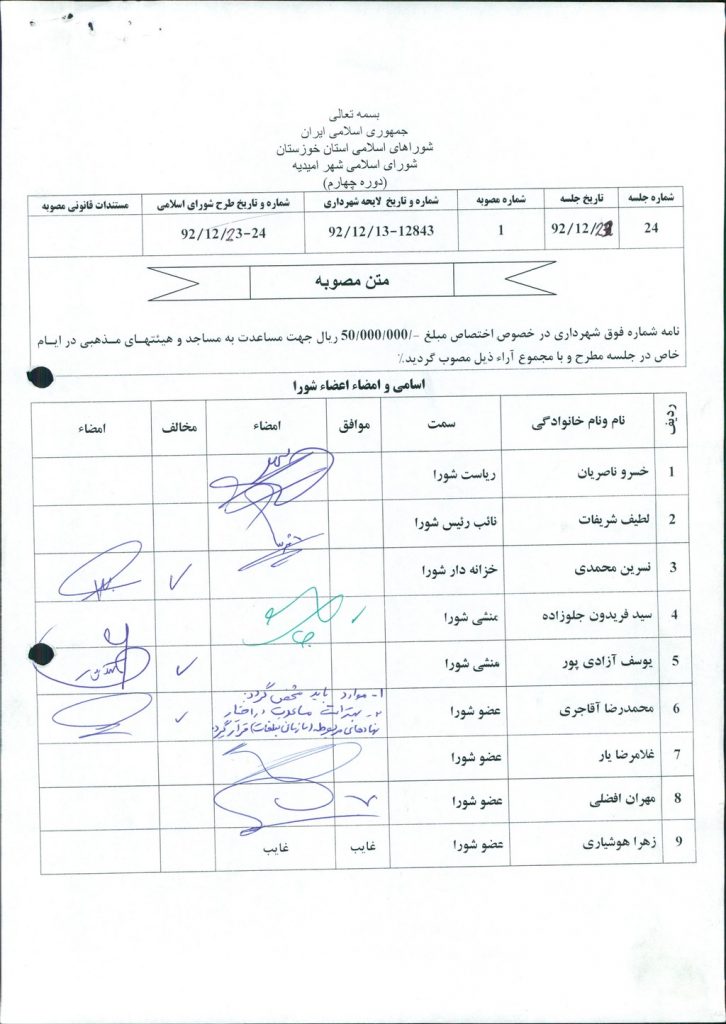 بسمه تعالی
جمهوری اسلامی ایران
شوراهای اسلامی استان خوزستان
شورای اسلامی شهر امیدیه
(دوره چهارم)
شماره جلسه تاریخ جلسه شماره مصوبه شماره و تاریخ لایحه شهرداری شماره و تاریخ طرح شورای اسلامی مستندات قانونی مصوبه
24 92/12/ 1 92/12/13-12843 92/12/23-24
متن مصوبه
نامه شماره فوق شهرداری در خصوص اختصاص مبلغ -/50/000/000 ریال جهت مساعدت به مساجد و هیئتهای مذهبی در ایام
خاص در جلسه مطرح و با مجموع آراء ذیل مصوب گردید٪
اسامی و امضاء اعضاء شورا
ردیف نام ونام خانوادگی سمت موافق امضاء مخالف امضاء
1 خسرو ناصریان ریاست شورا
2 لطیف شریفات نائب رئیس شورا
3 نسرین محمدی خزانه دار شورا
4 سید فریدون جلوزاده منشی شورا
5 یوسف آزادی پور منشی شورا
6 محمدرضا آقاجری عضو شورا
1- موارد باید مشخص گردد.
2- بهتر است مساعدت در اختیار
نهادهای مربوطه (سازمان تبلیغات) قرار گیرد
7 غلامرضا یار عضو شورا
8 مهران افضلی عضو شورا
9 زهرا هوشیاری عضو شورا غایب غایب